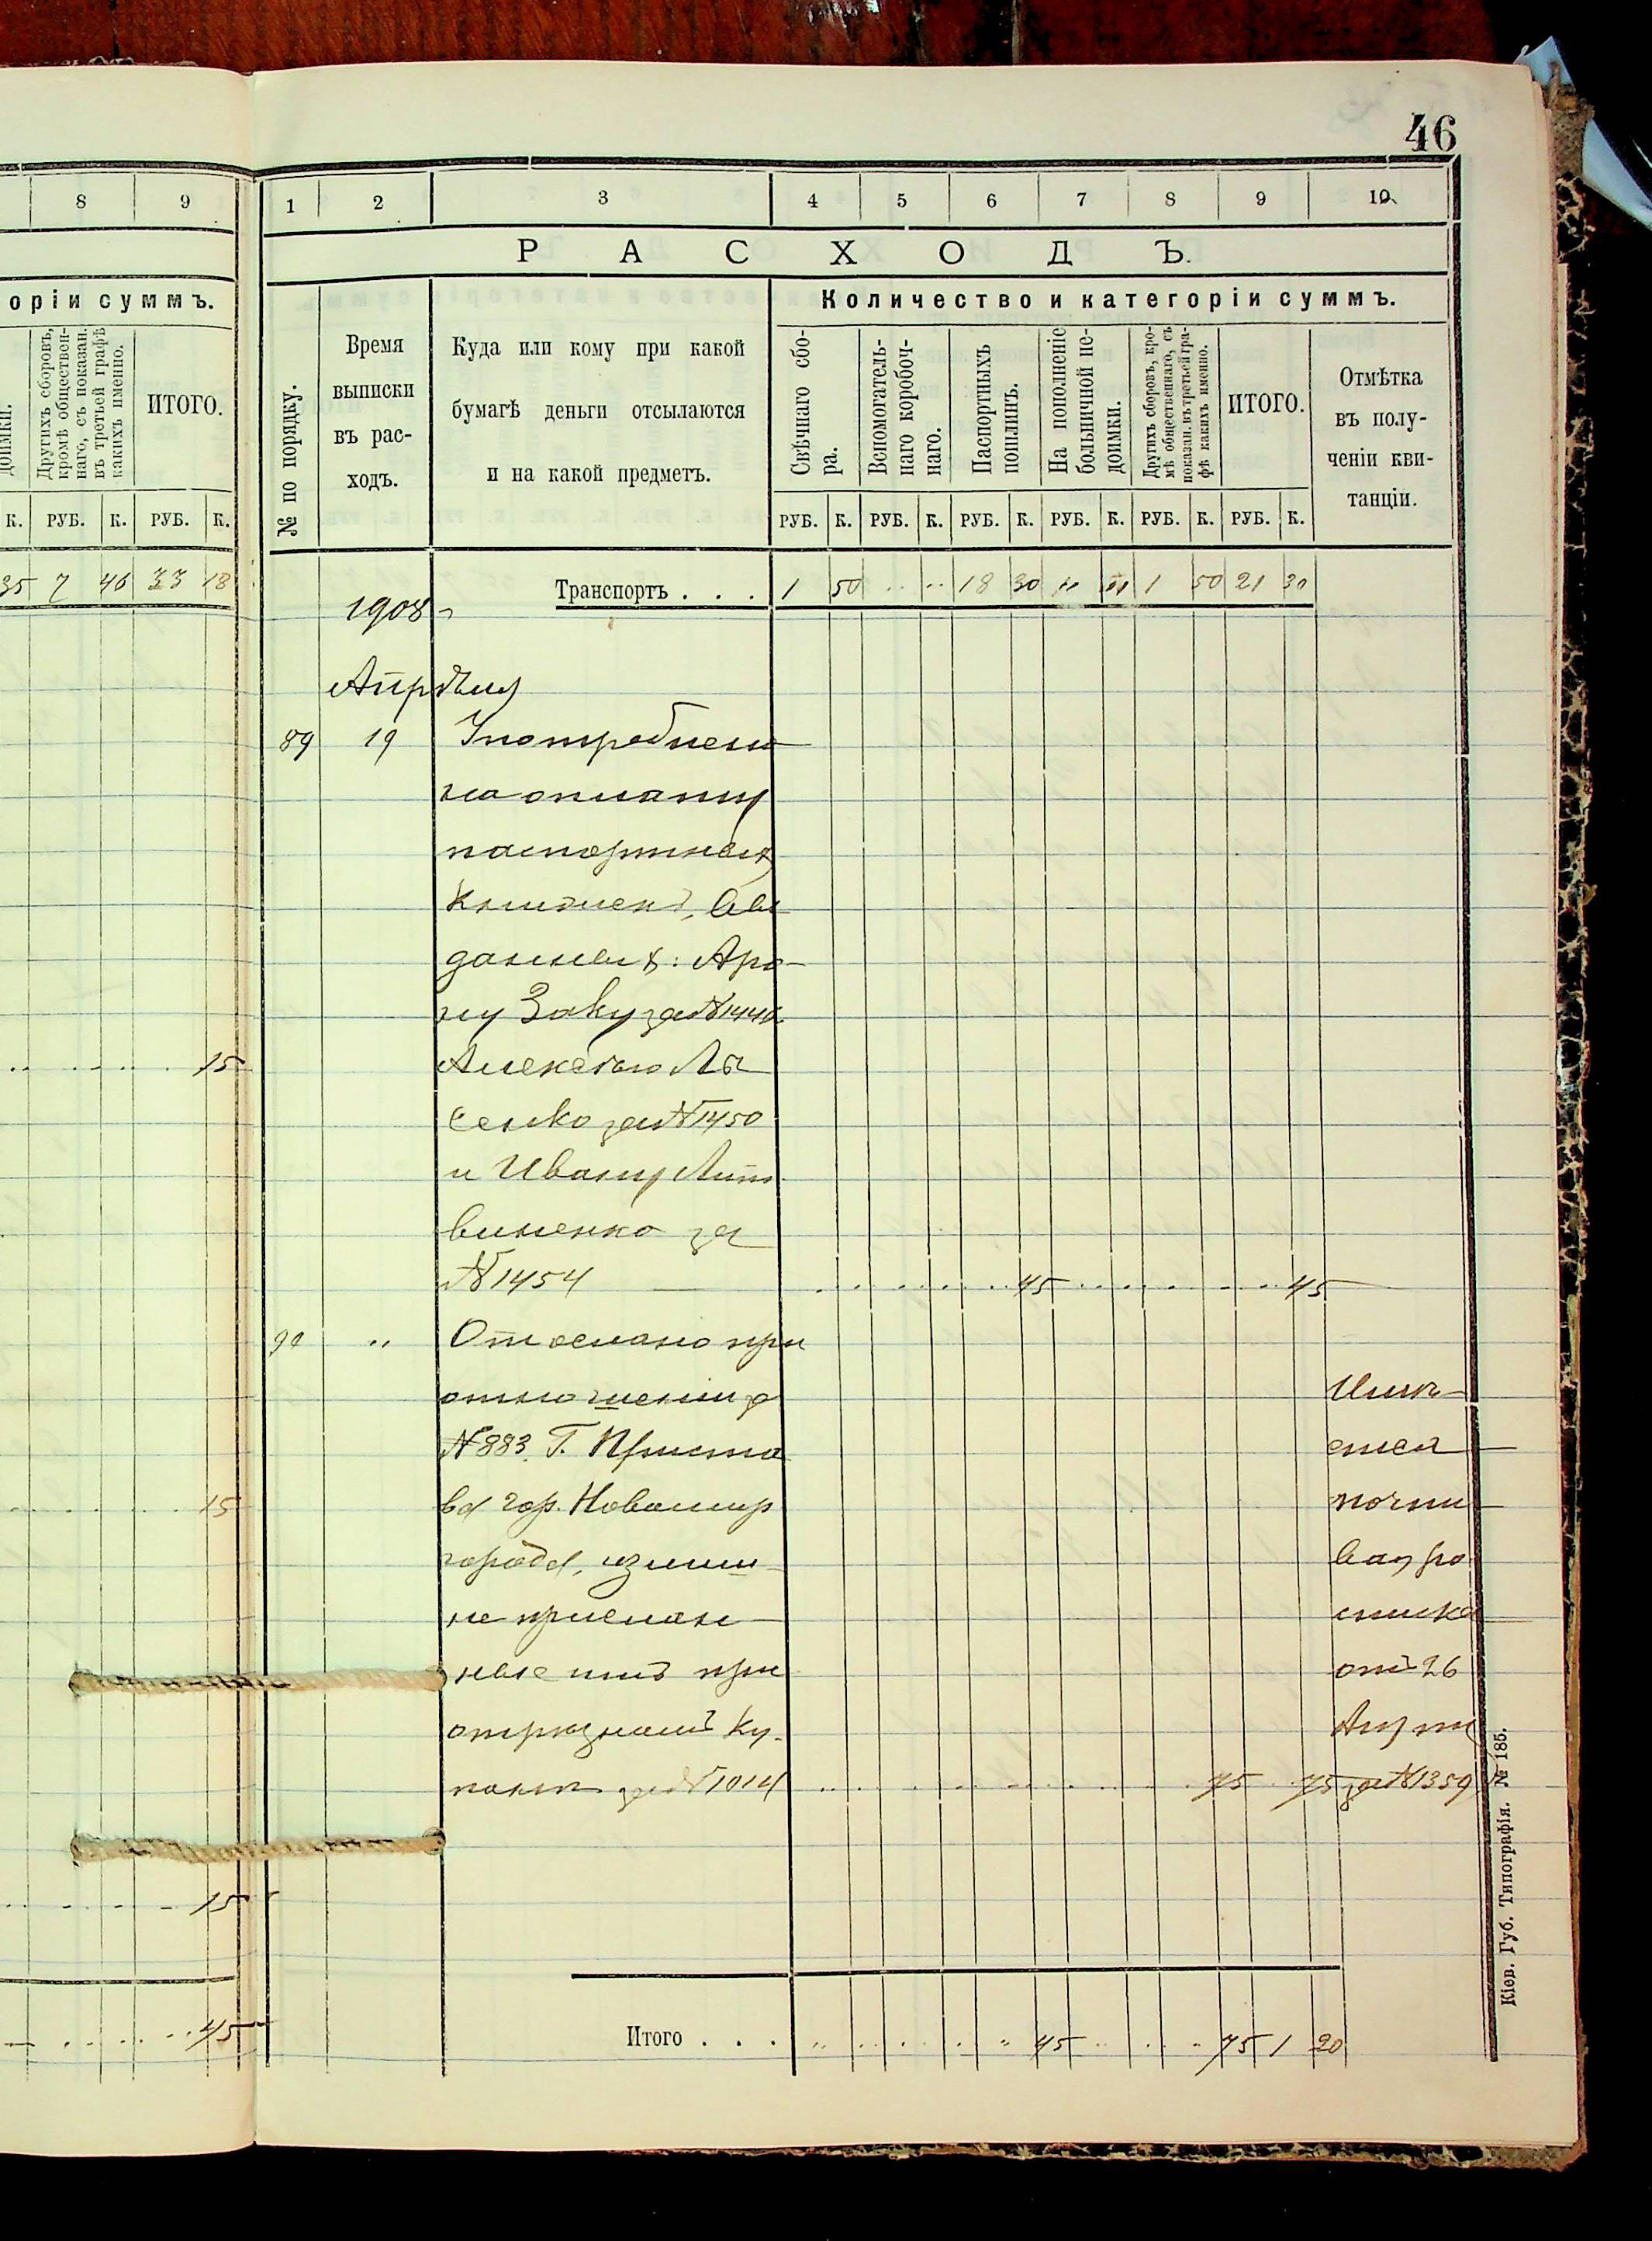 46
8 9
1 2 3 4 5 6 7 8 9 10
РАСХОДЪ.
оріи суммъ.
Количество и категоріи суммъ.
доимки.
Другихъ сборовъ,
кромѣ обществен-
наго, съ показан.
въ третьей графѣ
какихъ именно.
ИТОГО.
№ по порядку.
Время
выписки
въ рас-
ходъ.
Куда или кому при какой
бумагѣ деньги отсылаются
и на какой предметъ.
Свѣчнаго сбо-
ра.
Вспомогатель-
наго коробоч-
наго.
Паспортныхъ
пошлинъ.
На пополненіе
больничной не-
доимки.
Другихъ сборовъ, кро-
мѣ общественнаго, съ
показан. въ третьей гра-
фѣ какихъ именно.
ИТОГО.
Отмѣтка
въ полу-
ченіи кви-
танціи.
К. РУБ. К. РУБ. К.
РУБ. К. РУБ. К. РУБ. К. РУБ. К. РУБ. К. РУБ. К.
35 7 46 33 18
Транспортъ . . . 1 50 " " 18 30 " " 1 50 21 30
1908
Апрѣля
89 19 Употреблено
на оплату
паспортныхъ
книжекъ, вы
данныхъ: Аро-
ну Заку за №1448
15
Алексѣю Лы
сенко за №1450
и Ивану Лит
виненко за
№1454 45 45
90 " Отослано при
отношеніи за
№883. Г. Приста
ва гор. Новомир
15
города, излиш
не прислан
ные имъ при
отрѣзномъ ку-
понѣ за №1014 75 75
Имѣ-
ется
почто
вая ро
списка
отъ 26
Апрѣля
за №1359
15
45
Итого . . . " 45 75 1 20
Кіев. Губ. Типографія. № 185.